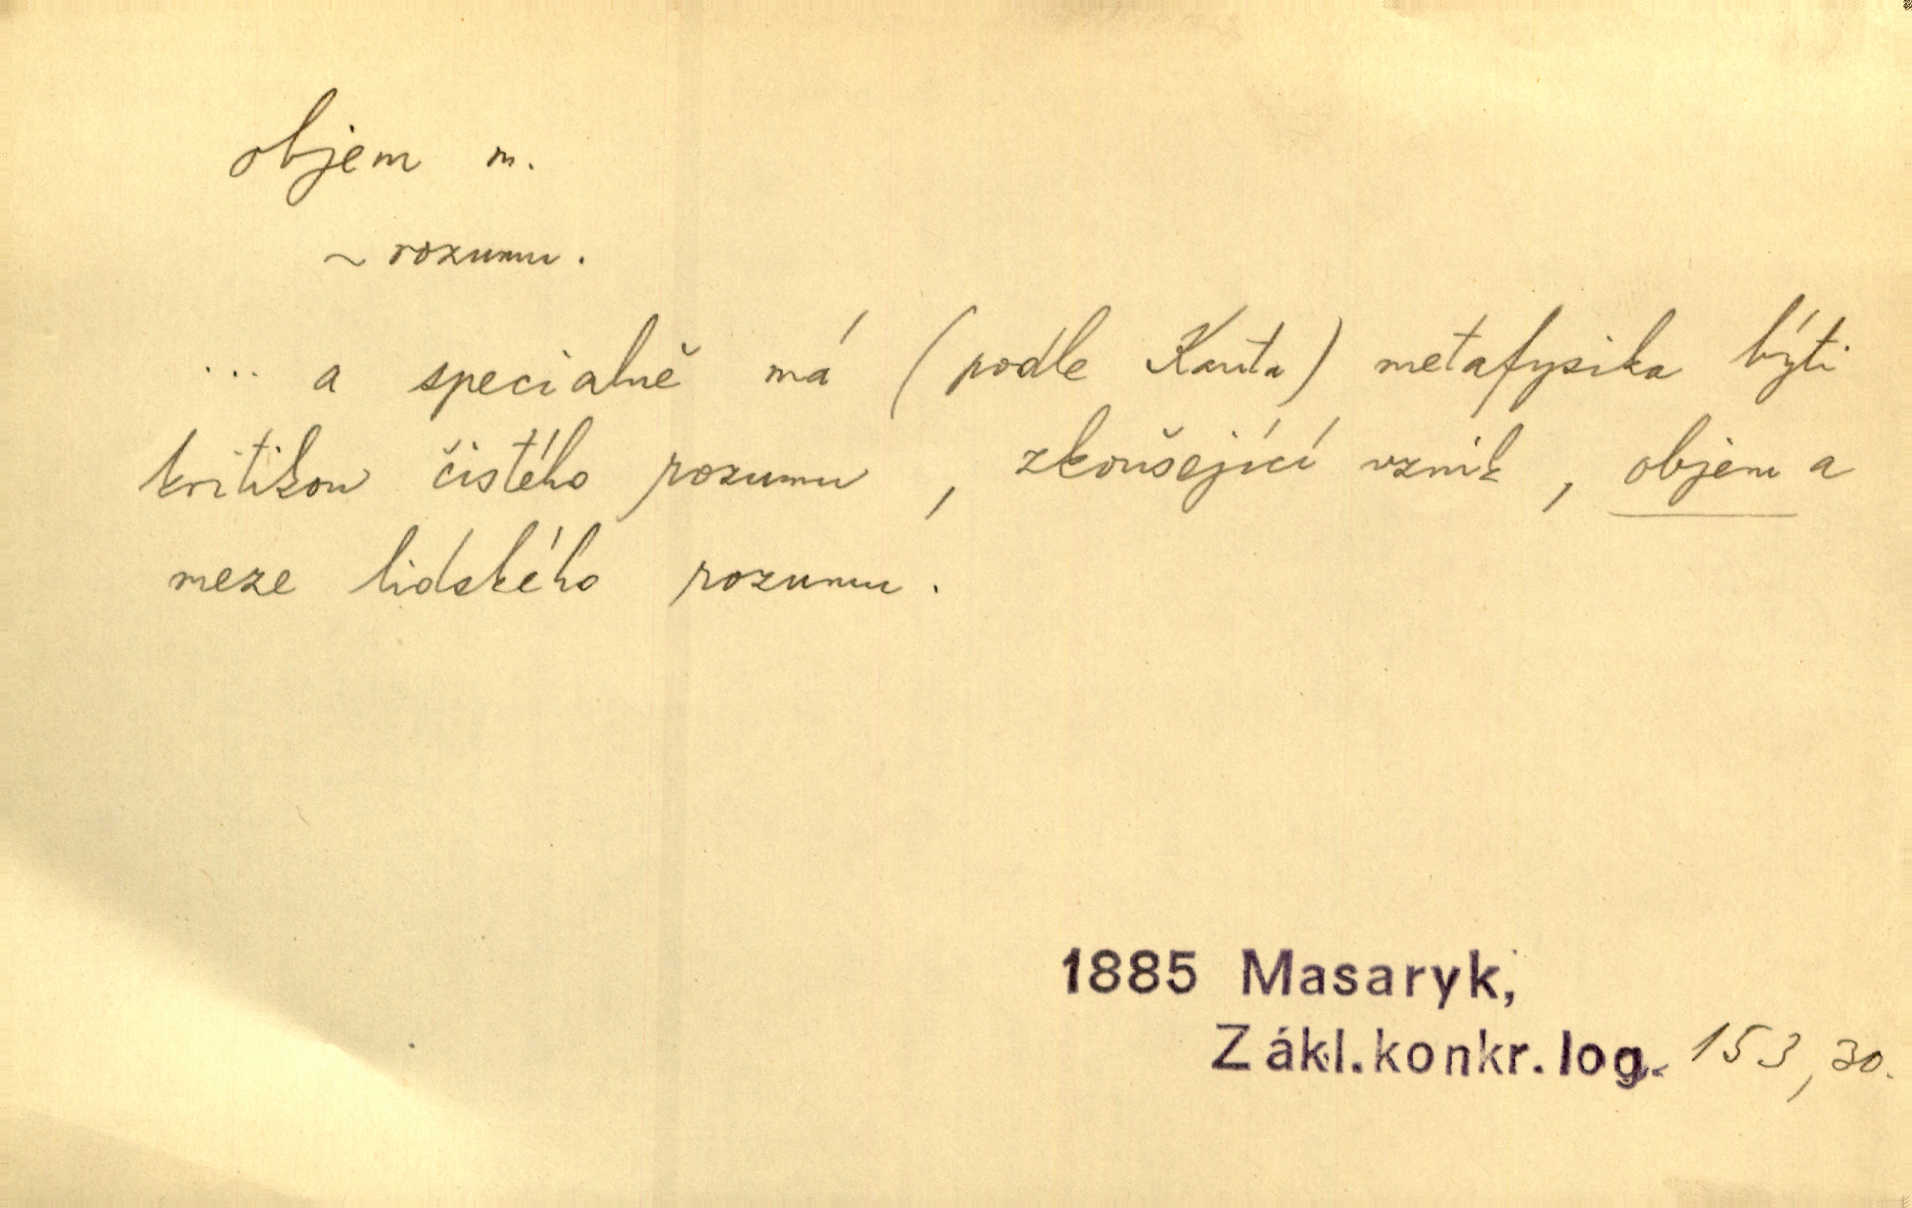 objem m.
~ rozumu.
... a specialně má (podle Kanta) metafysika býti
kritikou čistého rozumu, zkoušející vznik, objem a
meze lidského rozumu.
1885 Masaryk,
Zákl.konkr.log. 153,30.